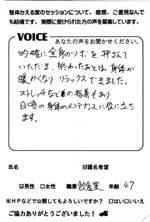 整体かえる堂のセッションについて、感想、ご意見なんで
も結構です。実際に受けられた方の声を募集しています。
VOICE
あなたの声をお聞かせください。
的確に全身のツボを押さえて
いただき、終わったあとは、身体が
暖かくなりリラックスできました。
ストレッチなど春の指導もあり
日頃の身体のメンテナンスに役に立ち
ます。
氏名
☑匿名希望
☑男性 □女性 職業 飲食業 年齢 47
※HPなどで公開してもよろしいですか？ □はい□いいえ
ご協力ありがとうございました！